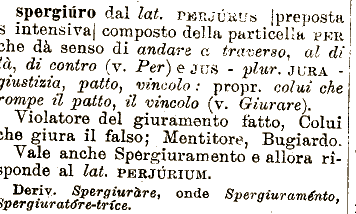 spergiúro dal lat. PERJÚRUS [preposta
s intensiva] composto della particella PER
che dà senso di andare a traverso, al di
là, di contro (v. Per) e JUS - plur. JURA -
giustizia, patto, vincolo: propr. colui che
rompe il patto, il vincolo (v. Giurare).
Violatore del giuramento fatto, Colui
che giura il falso; Mentitore, Bugiardo.
Vale anche Spergiuramento e allora ri-
sponde al lat. PERJÚRIUM.
Deriv. Spergiuràre, onde Spergiuraménto,
Spergiuratóre-tríce.